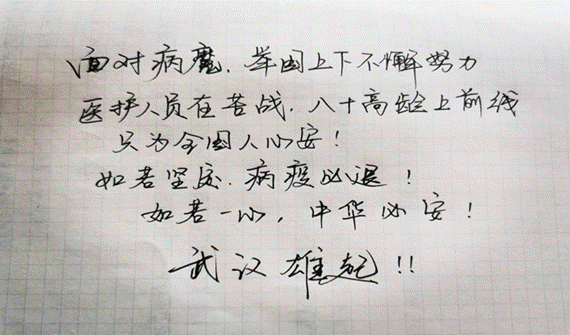 面对病魔，举国上下不懈努力
医护人员在苦战，八十高龄上前线
只为全国人心安！
如若坚定，病疫必退！
如若一心，中华必安！
武汉雄起！！